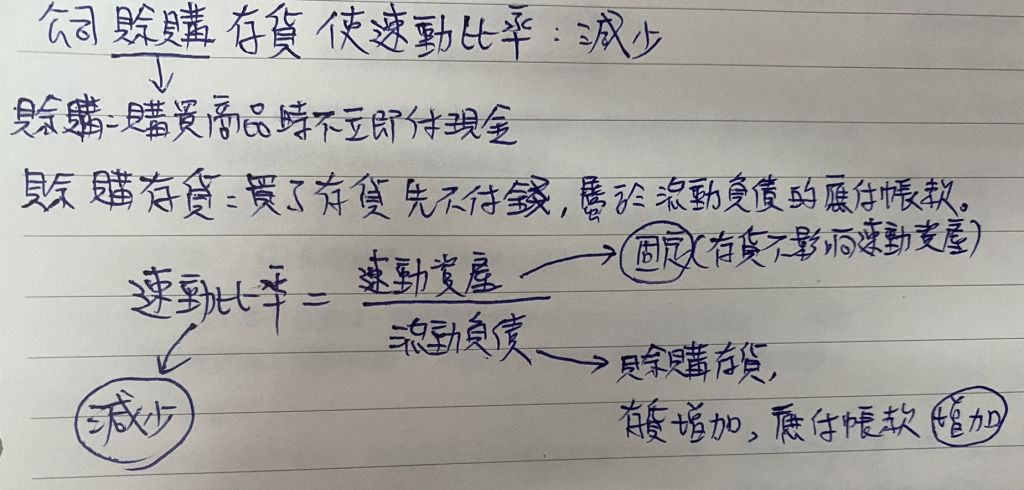 公司賒購存貨使速動比率:減少
賒購:購買商品時不立即付現金
賒購存貨:買了存貨先不付錢,屬於流動負債的應付帳款。
速動比率=速動資產
固定(存貨不影响速動資產)
流動負債
賒購存貨,
減少
存貨增加,應付帳款增加